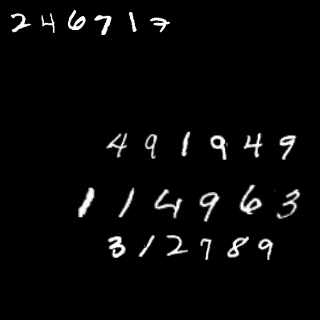 246717
491949
114963
312789